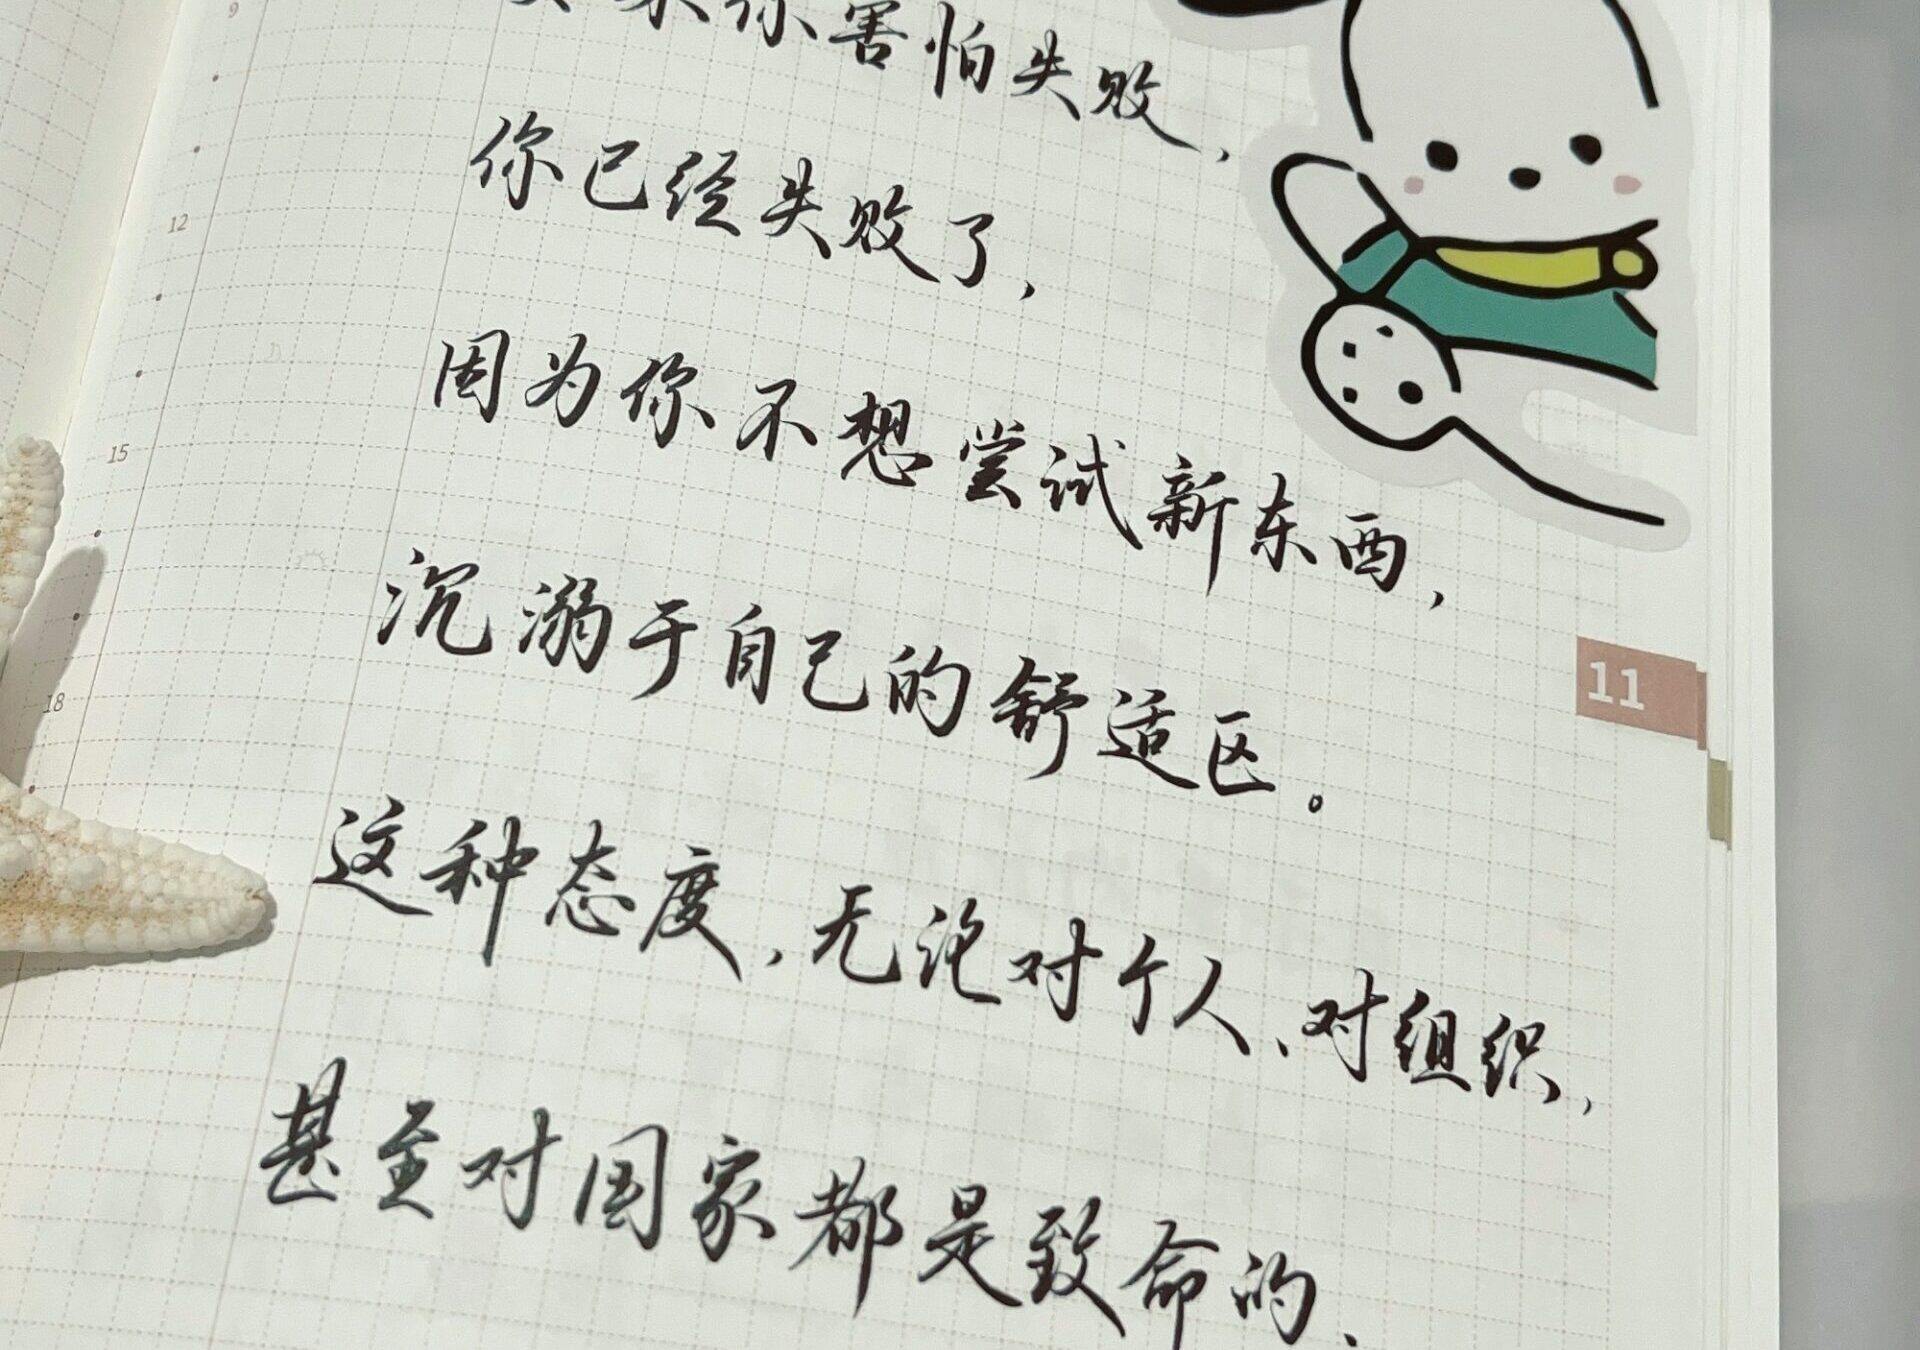 如果你害怕失败，
你已经失败了，
因为你不想尝试新东西，
沉溺于自己的舒适区。
这种态度，无论对个人、对组织，
甚至对国家都是致命的、
9
12
15
18
11